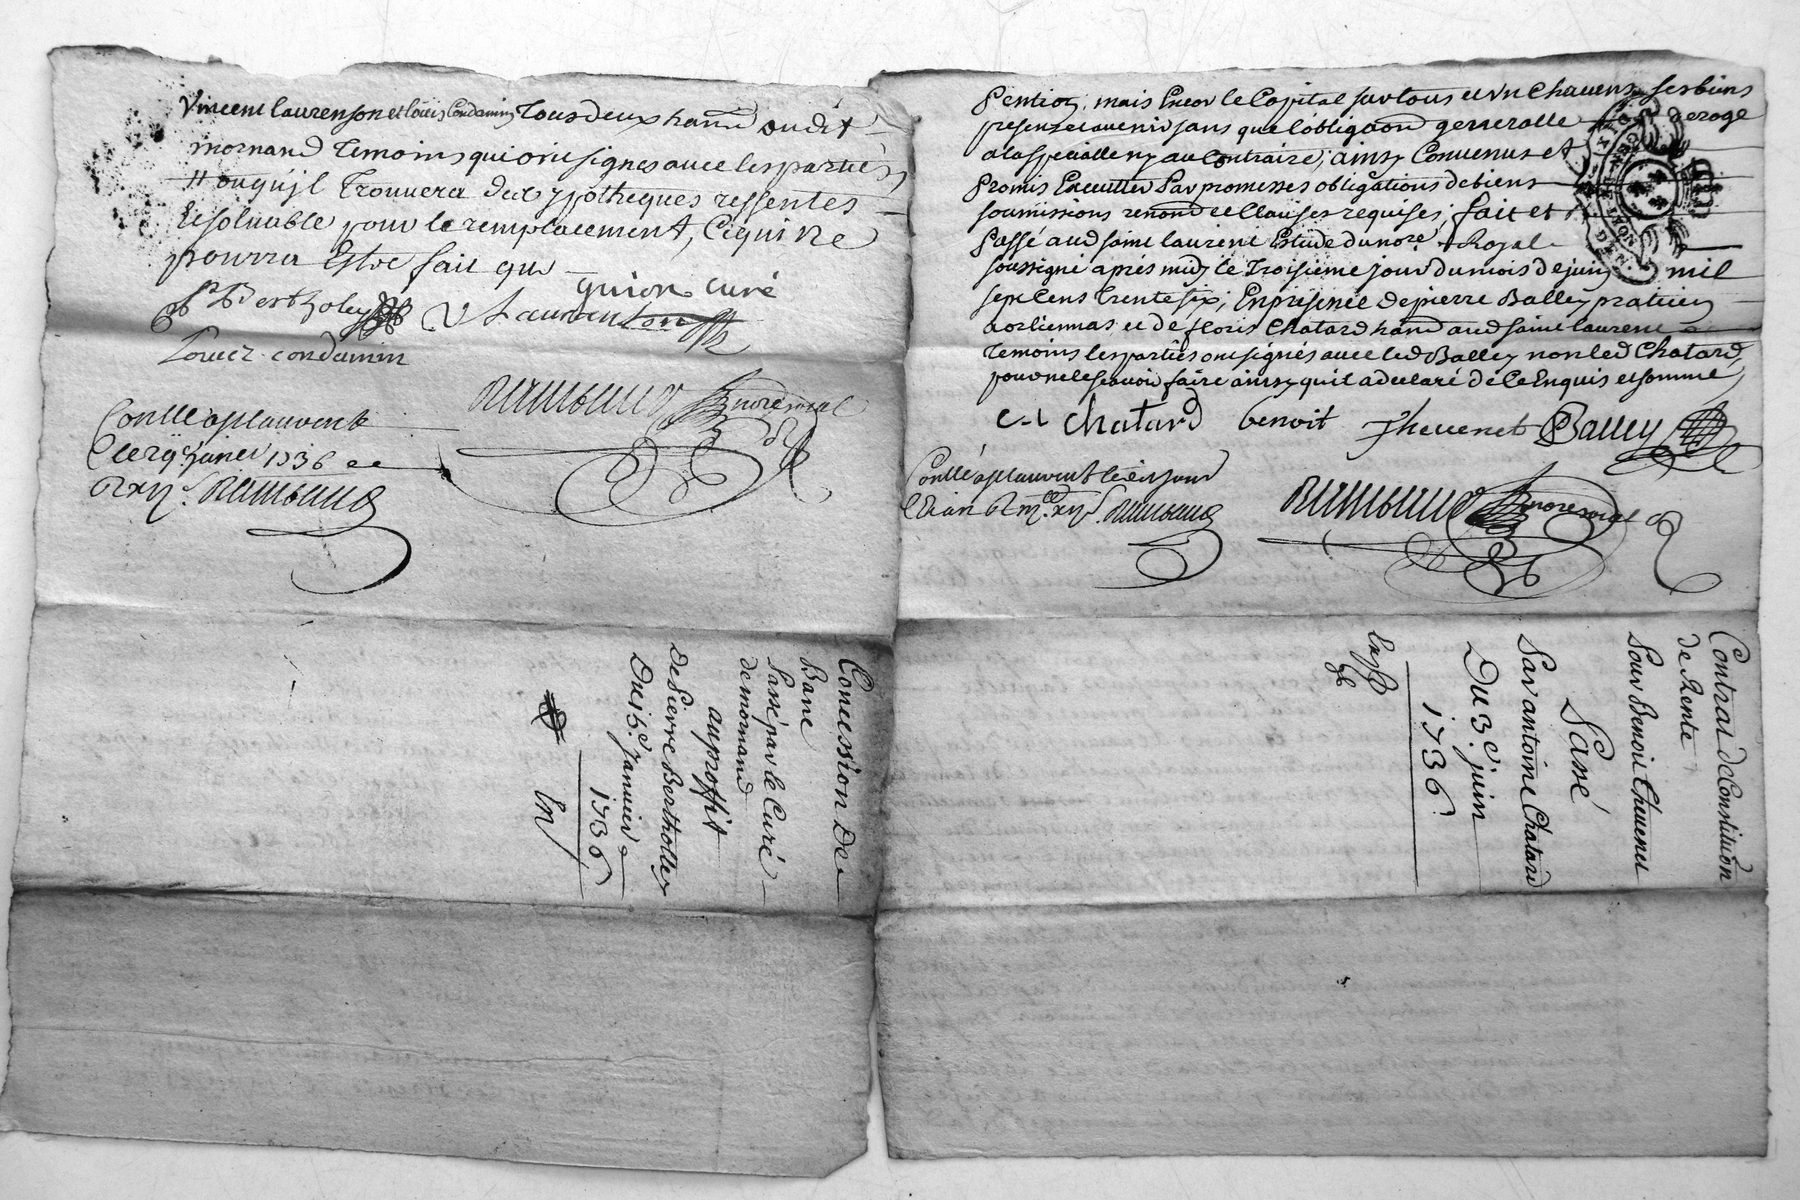 Vincent laurenson et loüis Condamin Tous deux hants dudit
mornand Temoins qui ont signes avec les parties
ou qu'jl Trouvera des ypotheques ressentes
Et solvable pour le remplacement, Cequi ne
pourra Estre fait que
guion curé
Bertholey V Laurenson
Louer condamin
Rimbaud nore royal
Conllé a st laurent
Le 27e janer 1736
R xij s. Rimbaud
Concession De
Banc
Passé par le Curé
de mornand
au proffit
De Pierre Bertholley
Du 15e. Janvier
1736
En
pention, mais Encor le Capital sur tous et un Chacuns ses biens
presentz et avenir sans que l'obligaôn generalle deroge
a la specialle ny au Contraire; ainsy Convenus et
Promis Executter Par promesses obligations de biens
soumissions renonôn et Clauses requises; fait et
Passé aud saint laurent Estude du nore. Royal
soussigné aprés midy le Troisieme jour du mois de juin mil
sept Cens Trente six, En presence de pierre Balley praticien
a orliennas et de floris Chatard hant aud saint laurent
Temoins les parties ont signés avec led Balley non led Chatard
pour ne le scavoir faire ainsy qu'il a declaré de ce Enquis et sommé
chatard benoit Thevenet Balley
Conllé a st laurent led jour
Rimbaud
Rimbaud nore royal
Contrat de Constitution
de Rente
Pour Benoit Thevenet
Passé
Par antoine Chatard
Du 3e. juin
1736